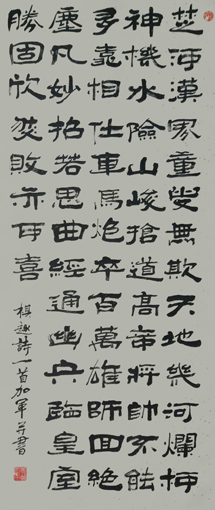 楚河漢界童叟無欺天地幾河爛柯
神機水險山峻搶道高帝將帥不能
多靠相仕車馬炮卒百萬雄師回絕
塵凡妙招若思曲經通幽兵臨皇室
勝固欣然敗亦可喜
棋趣詩一首加軍并書